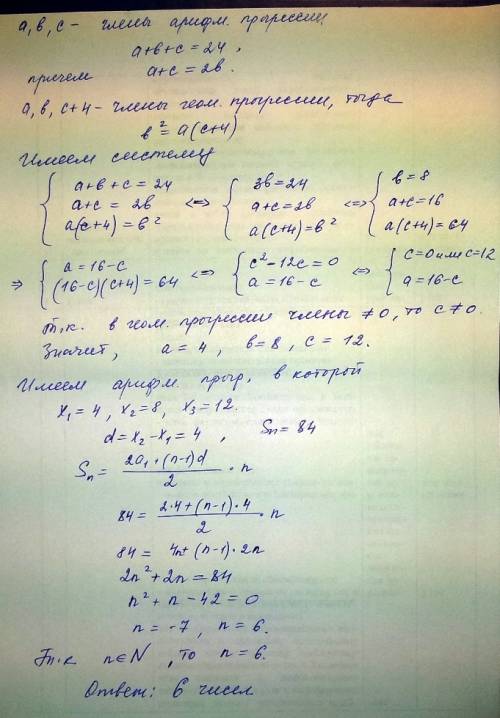 a, b, c – члены арифм. прогрессии
a+b+c = 24,
причем a+c = 2b.
a, b, c+4 – члены геом. прогрессии, тогда
b² = a(c+4)
Имеем систему
{ a+b+c = 24 <=> { 3b = 24 <=> { b = 8
a+c = 2b a+c = 2b a+c = 16
a(c+4) = b² a(c+4) = b² a(c+4) = 64
=> { a = 16-c <=> { c² - 12c = 0 <=> { c = 0 или c = 12
(16-c)(c+4) = 64 a = 16-c a = 16-c
Т.к. в геом. прогрессии члены ≠ 0, то c ≠ 0.
Значит, a = 4, b = 8, c = 12.
Имеем арифм. прогр, в которой
x₁ = 4, x₂ = 8, x₃ = 12.
d = x₂ - x₁ = 4, Sn = 84
Sn = (2a₁ + (n-1)d)/2 · n
84 = (2·4 + (n-1)·4)/2 · n
84 = 4n + (n-1)·2n
2n² + 2n = 84
n² + n - 42 = 0
n = -7, n = 6.
Т.к n ∈ N, то n = 6.
Ответ: 6 чисел